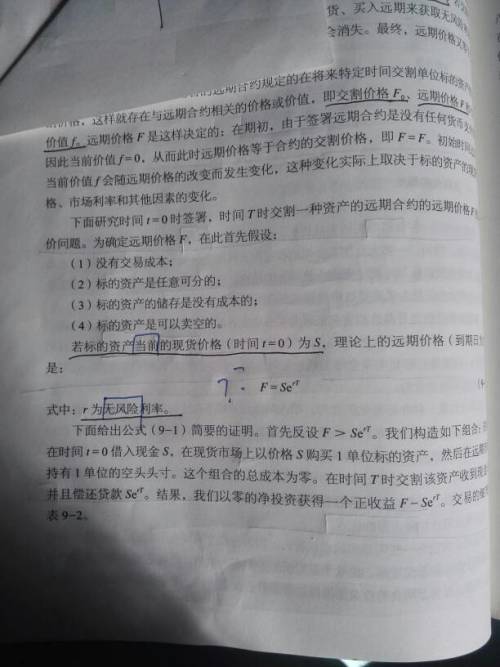 货、买入远期来获取无风险
会消失。最终，远期价格又
的远期合约规定的在将来特定时间交割单位标的资产
价格，这样就存在与远期合约相关的价格或价值，即交割价格 F₀、远期价格 F
价值 f。远期价格 F 是这样决定的：在期初，由于签署远期合约是没有任何货币
因此当前价值 f=0，从而此时远期价格等于合约的交割价格，即 F=F₀。初始时间
当前价值 f 会随远期价格的改变而发生变化，这种变化实际上取决于标的资产的现
格、市场利率和其他因素的变化。
下面研究时间 t=0 时签署，时间 T 时交割一种资产的远期合约的远期价格
价问题。为确定远期价格 F，在此首先假设：
（1）没有交易成本；
（2）标的资产是任意可分的；
（3）标的资产的储存是没有成本的；
（4）标的资产是可以卖空的。
若标的资产当前的现货价格（时间 t=0）为 S，理论上的远期价格（到期日
是：
?: F=Se^{rT} (9-
式中：r 为无风险利率。
下面给出公式（9-1）简要的证明。首先反设 F＞Se^{rT}。我们构造如下组合：
在时间 t=0 借入现金 S，在现货市场上以价格 S 购买 1 单位标的资产，然后在远期
持有 1 单位的空头头寸。这个组合的总成本为零。在时间 T 时交割该资产收到现
并且偿还贷款 Se^{rT}。结果，我们以零的净投资获得一个正收益 F-Se^{rT}。交易的
表 9-2。